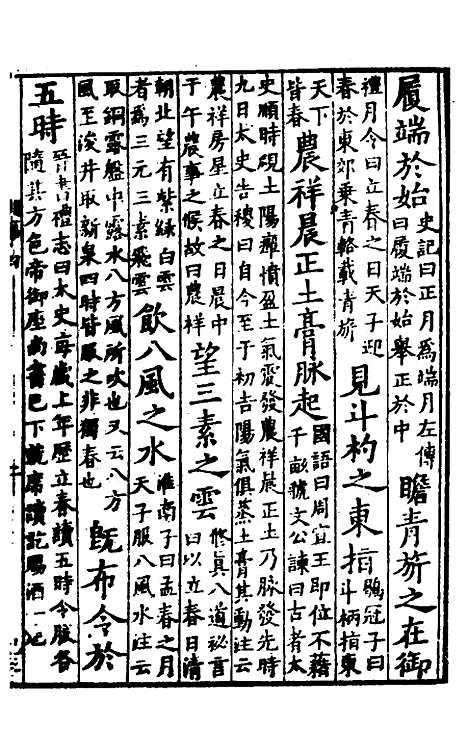 履端於始史記曰正月爲端月左傳曰履端於始舉正於中瞻青旂之在御
禮月令曰立春之日天子迎春於東郊乗青輅載青旂見斗杓之東指鶡冠子曰斗柄指東
天下皆春農祥晨正土膏脉起國語曰周宣王即位不藉千畝虢文公諫曰古者太
史順時覛土陽癉憤盈土氣震發農祥晨正土乃脉發先時九日太史告稷曰自今至于初吉陽氣俱蒸土膏其動注云
農祥房星立春之日晨中于午農事之候故曰農祥望三素之雲脩真八道祕言曰以立春日清
朝北望有紫綠白雲者爲三元三素飛雲飲八風之水淮南子曰孟春之月天子服八風水注云
取銅露盤中露水八方風所吹也又云八方風至浚井取新泉四時皆服之非獨春也既布令於
五時晉書禮志曰太史每歲上年歷立春讀五時令服各隨其方色帝御座尚書已下就席讀訖賜酒一巵